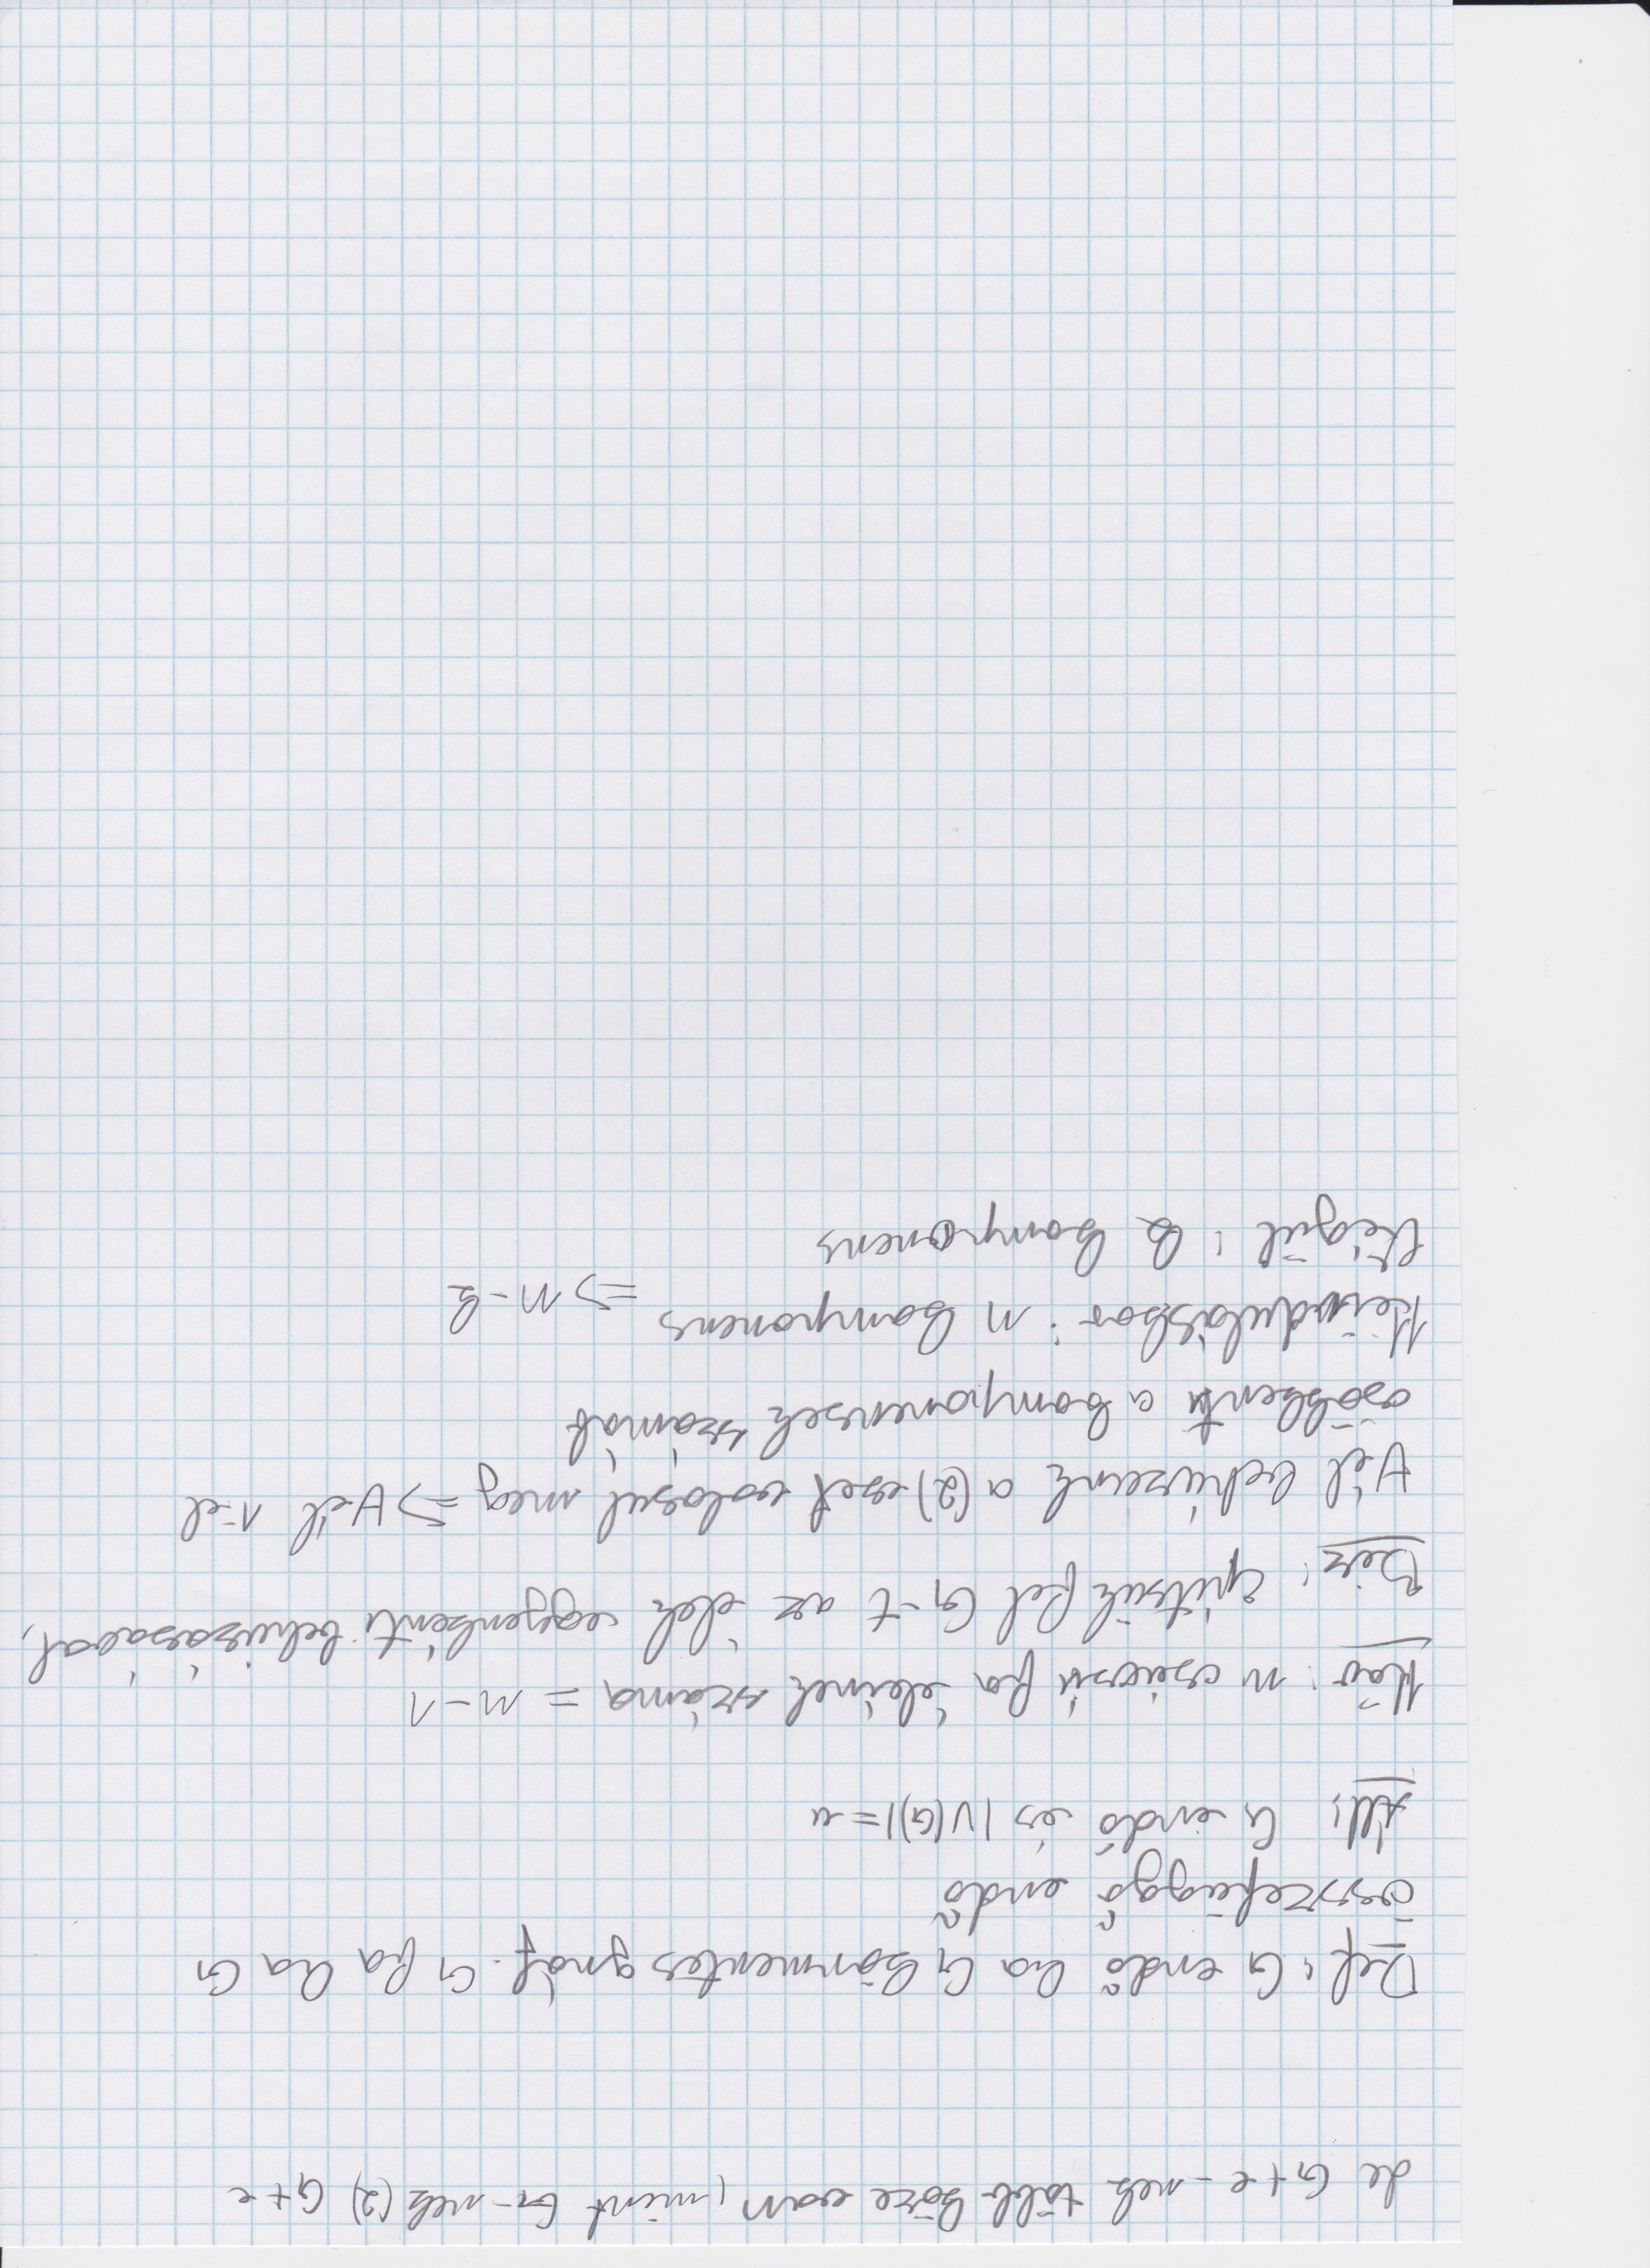 de G+e-nek több köre van, mint G-nek (2) G+e
Def: G erdő ha G körmentes gráf. G fa ha G
összefüggő erdő
Áll: G erdő és |V(G)|=n
Köv: n csúcsú fa éleinek száma = n-1
Biz: építsük fel G-t az élek egyenkénti behúzásával,
∀ él behúzásánk a (2) eset valósul meg => ∀ él 1-el
csökkenti a komponensek számát
Kiinduláskor: n komponens => n-k
Végül: k komponens